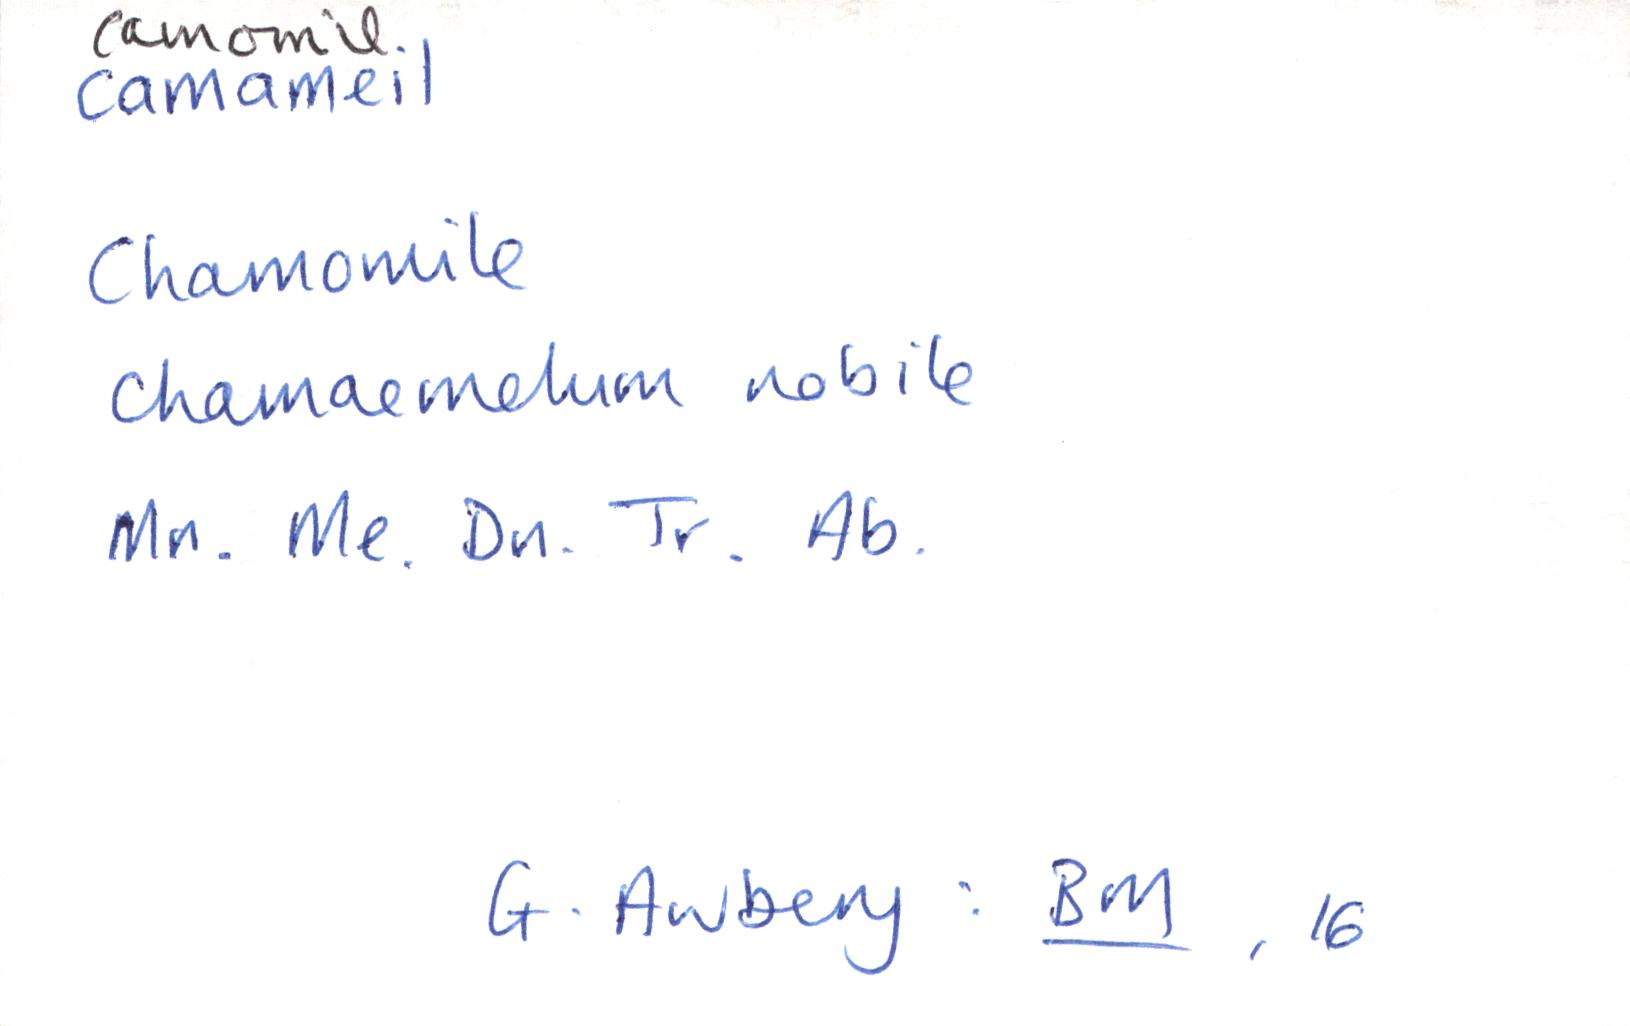 camomil
camameil
Chamomile
Chamaemelum nobile
Mn. Me. Dn. Tr. Ab.
G. Awbery : BM, 16